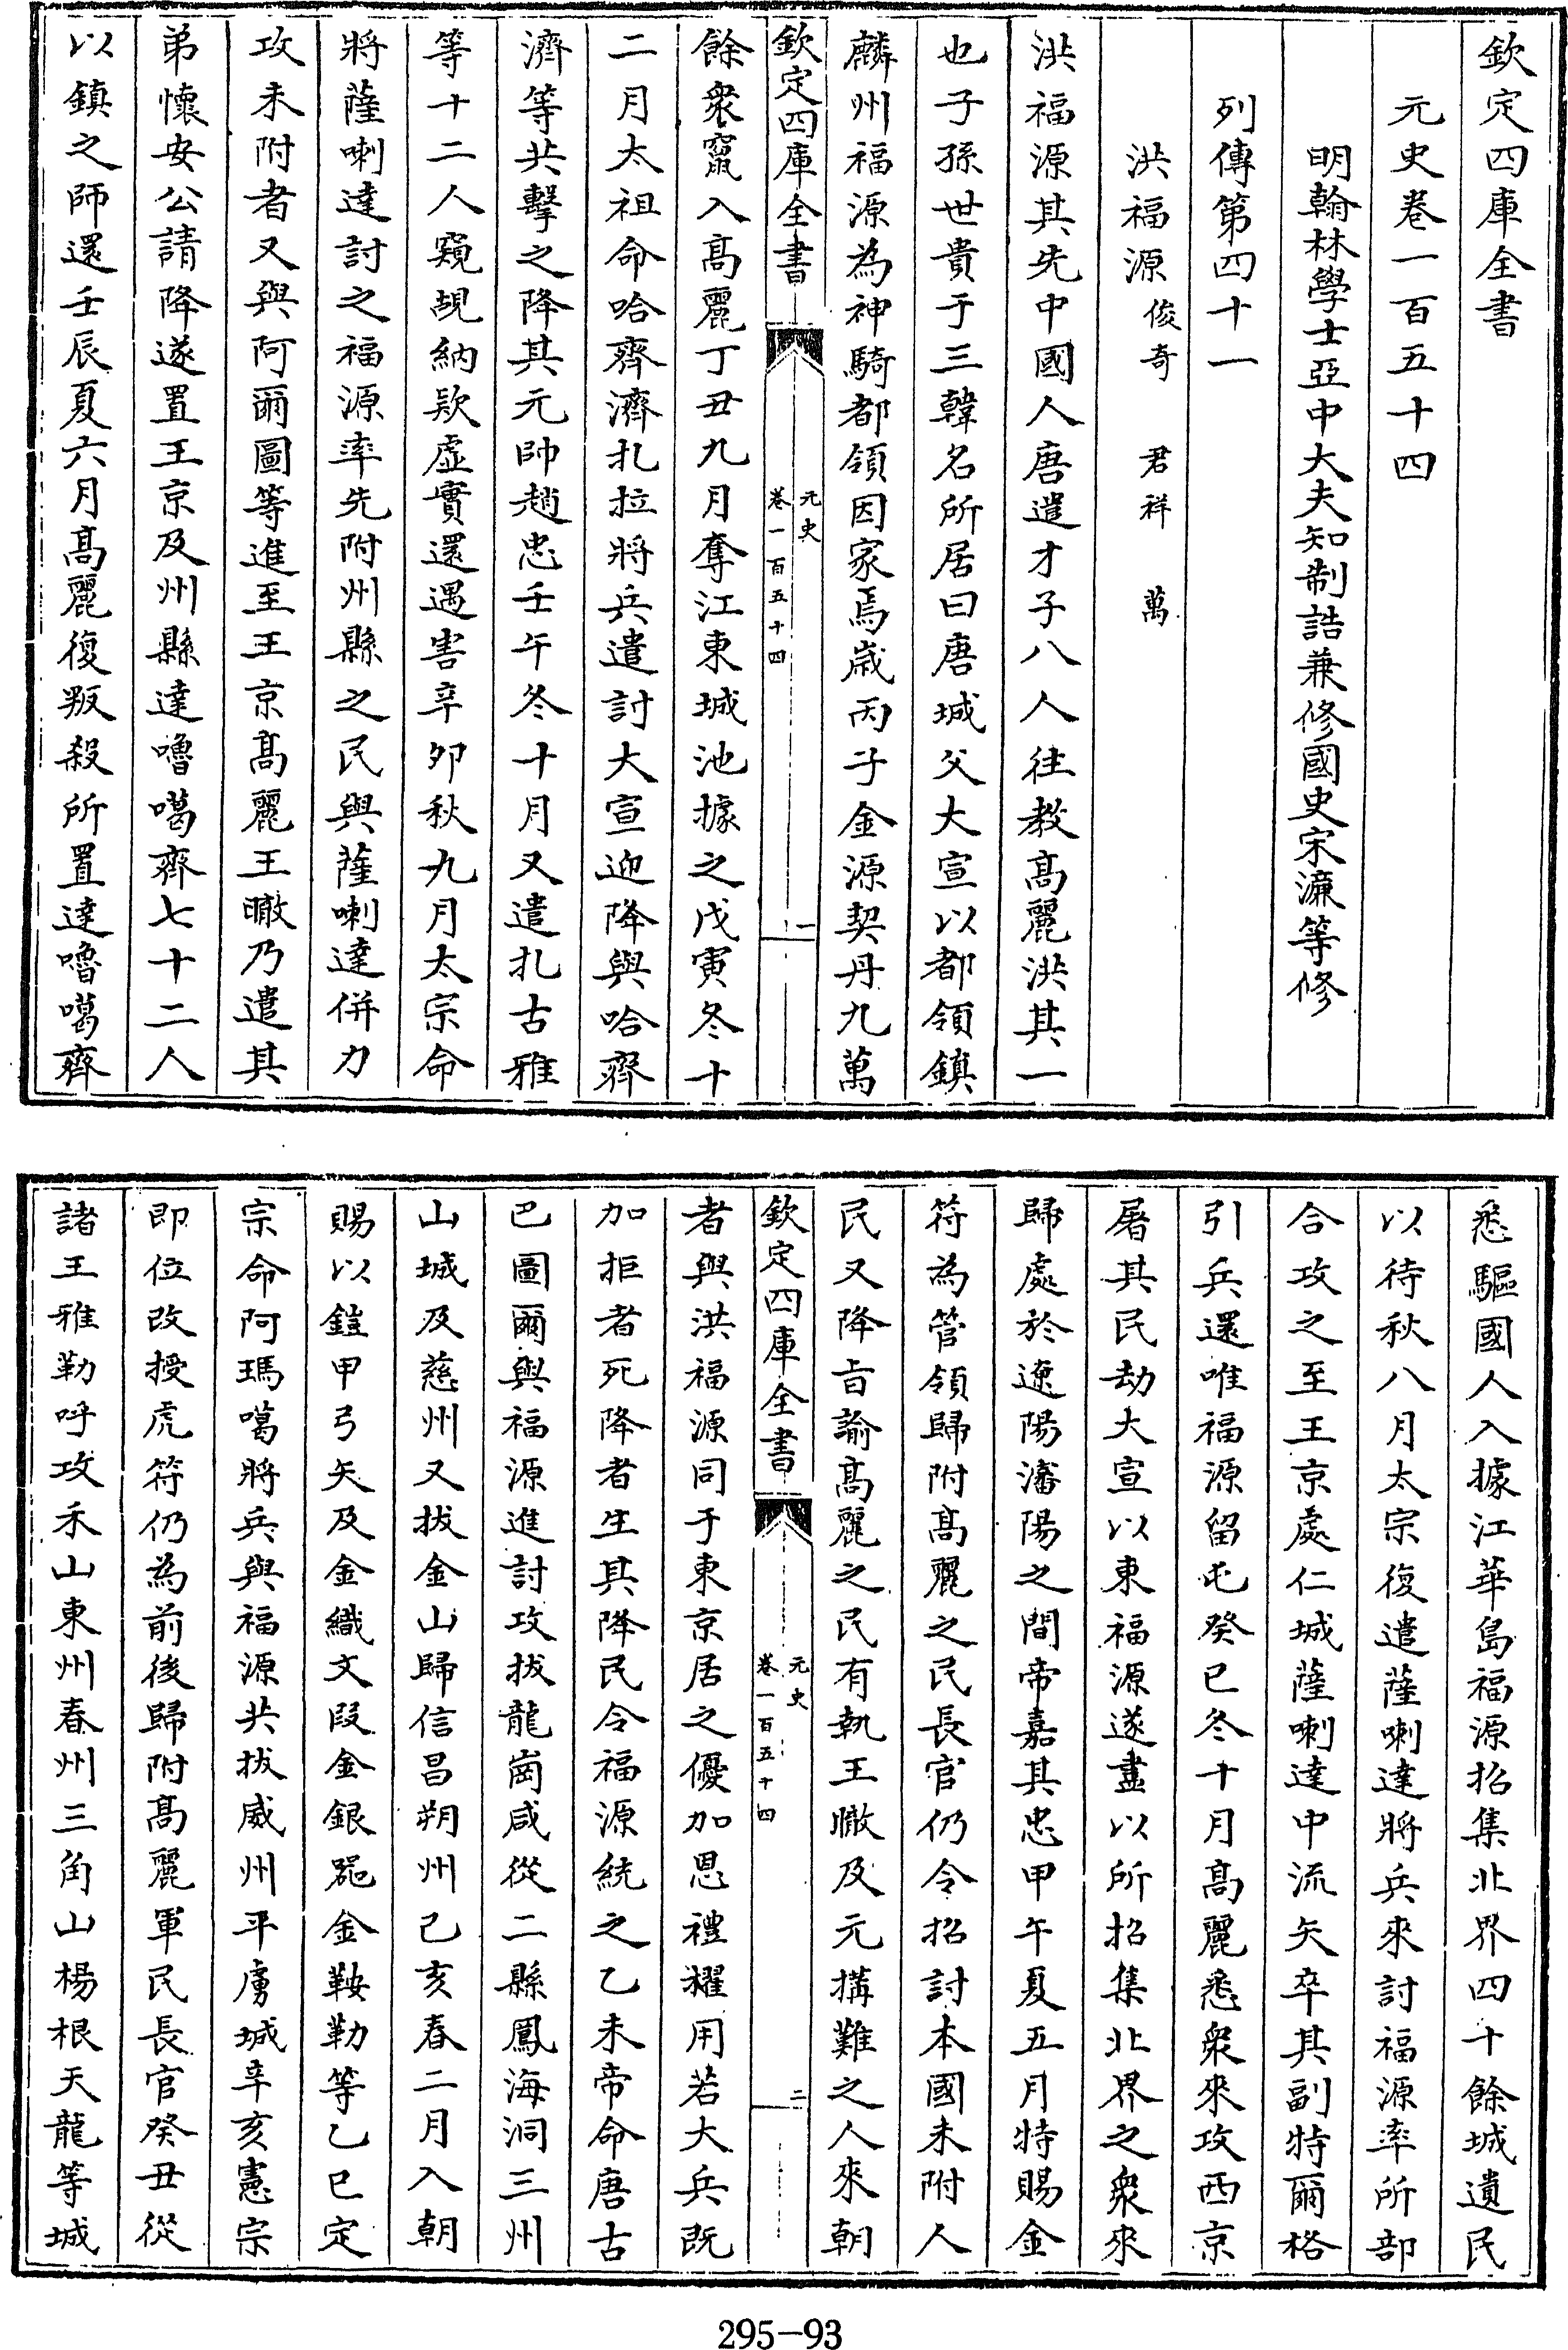 欽定四庫全書
元史卷一百五十四
明翰林學士亞中大夫知制誥兼修國史宋濂等修
列傳第四十一
洪福源俊奇 君祥 萬
洪福源其先中國人唐遣才子八人往教高麗洪其一
也子孫世貴于三韓名所居曰唐城父大宣以都領鎮
麟州福源為神騎都領因家焉歲丙子金源契丹九萬
欽定四庫全書
元史
卷一百五十四
一
餘衆竄入高麗丁丑九月奪江東城池據之戊寅冬十
二月太祖命哈齊濟扎拉將兵遣討大宣迎降與哈齊
濟等共擊之降其元帥趙忠壬午冬十月又遣扎古雅
等十二人窺覘納欵虛實還遇害辛夘秋九月太宗命
將薩喇達討之福源率先附州縣之民與薩喇達併力
攻未附者又與阿爾圖等進至王京高麗王㬚乃遣其
弟懷安公請降遂置王京及州縣達嚕噶齊七十二人
以鎮之師還壬辰夏六月高麗復叛殺所置達嚕噶齊
悉驅國人入據江華島福源招集北界四十餘城遺民
以待秋八月太宗復遣薩喇達將兵來討福源率所部
合攻之至王京處仁城薩喇達中流矢卒其副特爾格
引兵還唯福源留屯癸巳冬十月高麗悉衆來攻西京
屠其民劫大宣以東福源遂盡以所招集北界之衆來
歸處於遼陽瀋陽之間帝嘉其忠甲午夏五月特賜金
符為管領歸附高麗之民長官仍令招討本國未附人
民又降旨諭高麗之民有執王㬚及元搆難之人來朝
欽定四庫全書
元史
卷一百五十四
二
者與洪福源同于東京居之優加恩禮擢用若大兵既
加拒者死降者生其降民令福源統之乙未帝命唐古
巴圖爾與福源進討攻拔龍崗咸從二縣鳳海洞三州
山城及慈州又拔金山歸信昌朔州己亥春二月入朝
賜以鎧甲弓矢及金織文叚金銀器金鞍勒等乙巳定
宗命阿瑪噶將兵與福源共拔威州平虜城辛亥憲宗
即位改授虎符仍為前後歸附高麗軍民長官癸丑從
諸王雅勒呼攻禾山東州春州三角山楊根天龍等城
295-93